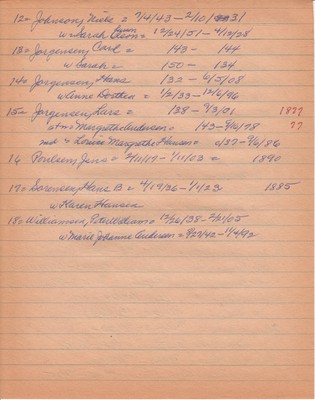 12= Johnson, Niels = 7/4/43-2/10/31
w= Sarah Olson= 12/24/51-4/17/28
13= Jorgensen, Carl = 143- 144
w Sarah = 150- 134
14= Jorgensen, Hans 132- 6/5/08
w Anne Dorthea = 1/2/33-12/6/96
15= Jorgensen, Lars = 138- 3/3/01 1877
1st m= Margrethe Anderson= 143-8/16/78 77
2nd " Louise Margrethe Hansen= c/37-9/6/86
16 Poulsen, Jens = 2/11/17-1/11/03= 1890
17= Sorensen, Hans B= 4/17/26-1/1/23 1885
w Karen Hansen
18= Williamsen, Peter William= 12/26/38-2/21/05
w Marie Johanne Andersen= 9/27/42-11/4/92